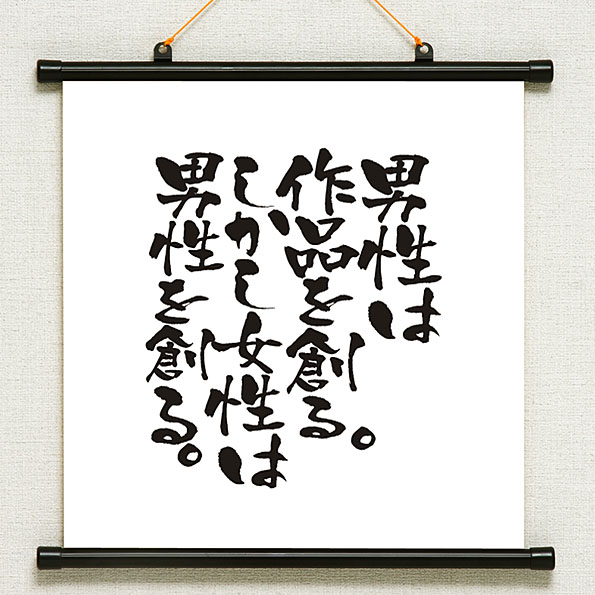 男性は
作品を創る。
しかし女性は
男性を創る。